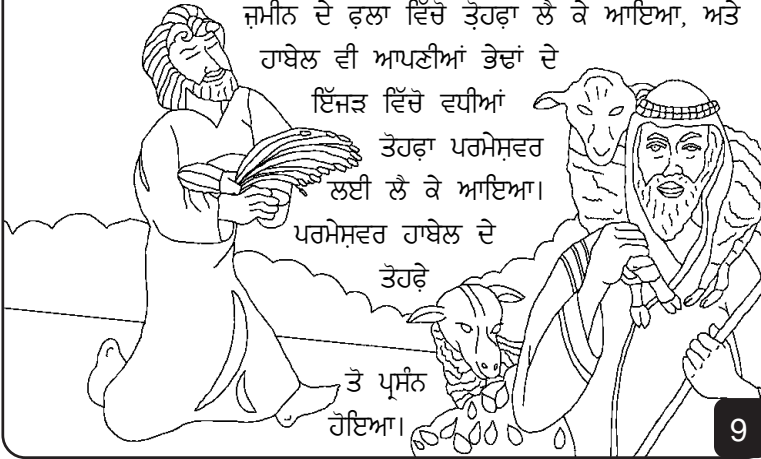 ਜ਼ਮੀਨ ਦੇ ਫ਼ਲਾ ਵਿੱਚੋ ਤੋ਼ਹਫਾ ਲੈ ਕੇ ਆਇਆ, ਅਤੇ
ਹਾਬੇਲ ਵੀ ਆਪਣੀਆਂ ਭੇਢਾਂ ਦੇ
ਇੱਜੜ ਵਿੱਚੋ ਵਧੀਆਂ
ਤੋਹਫ਼ਾ ਪਰਮੇਸ਼ਵਰ
ਲਈ ਲੈ ਕੇ ਆਇਆ।
ਪਰਮੇਸ਼ਵਰ ਹਾਬੇਲ ਦੇ
ਤੋਹਫ਼ੇ
ਤੋ ਪ੍ਰਸੰਨ
ਹੋਇਆ।
9